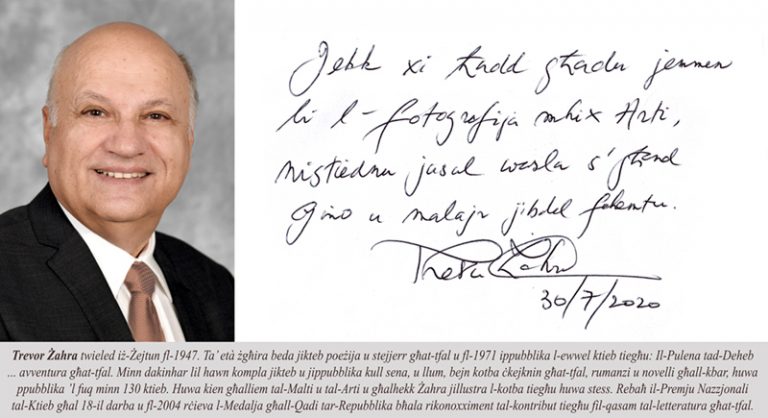 Jekk xi ħadd għadu jemmen
li l-fotografija mhix Arti,
nistiednu jasal wasla s'għand
Ġino u malajr jibdel fehmtu.
Trevor Żahra
30/7/2020
Trevor Żahra twieled iż-Żejtun fl-1947. Ta' età żgħira beda jikteb poeżija u stejjerr għat-tfal u fl-1971 ippubblika l-ewwel ktieb tiegħu: Il-Pulena tad-Deheb
... avventura għat-tfal. Minn dakinhar lil hawn kompla jikteb u jippubblika kull sena, u llum, bejn kotba ċkejknin għat-tfal, rumanzi u novelli għall-kbar, huwa
ppubblika 'l fuq minn 130 ktieb. Huwa kien għalliem tal-Malti u tal-Arti u għalhekk Żahra jillustra l-kotba tiegħu huwa stess. Rebaħ il-Premju Nazzjonali
tal-Ktieb għal 18-il darba u fl-2004 rċieva l-Medalja għall-Qadi tar-Repubblika bħala rikonoxximent tal-kontribut tiegħu fil-qasam tal-letteratura għat-tfal.